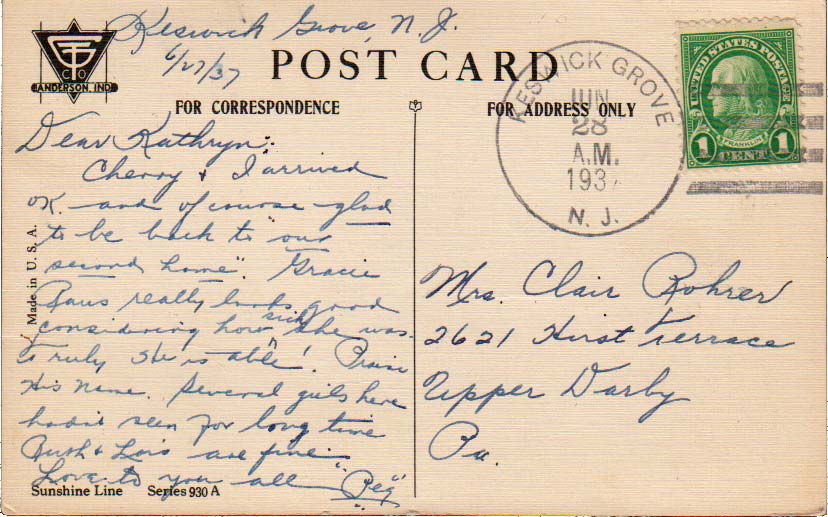 Keswick Grove, N. J.
6/27/37
GT CO
ANDERSON, IND.
POST CARD
FOR CORRESPONDENCE
FOR ADDRESS ONLY
KESWICK GROVE
JUN
28
A.M.
193
N. J.
UNITED STATES POSTAGE
FRANKLIN
1 CENT 1
Dear Kathryn:
Cherry & I arrived
OK. and of course glad
to be back to "our
second home". Gracie
really looks good
considering how sick she was.
truly "He is able"! Praise
His Name. Several girls here
hadn't seen for long time
Ruth & Lois are fine.
Love to you all "Peg"
Made in U. S. A.
Mrs. Clair Rohrer
2621 Hirst Terrace
Upper Darby
Pa.
Sunshine Line Series 930 A